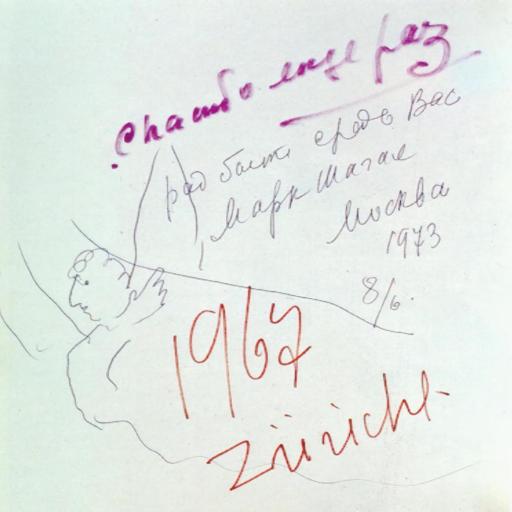 спасибо еще раз
рад быть среди Вас
Марк Шагал
Москва
1973
8/6.
1967
Zürich.